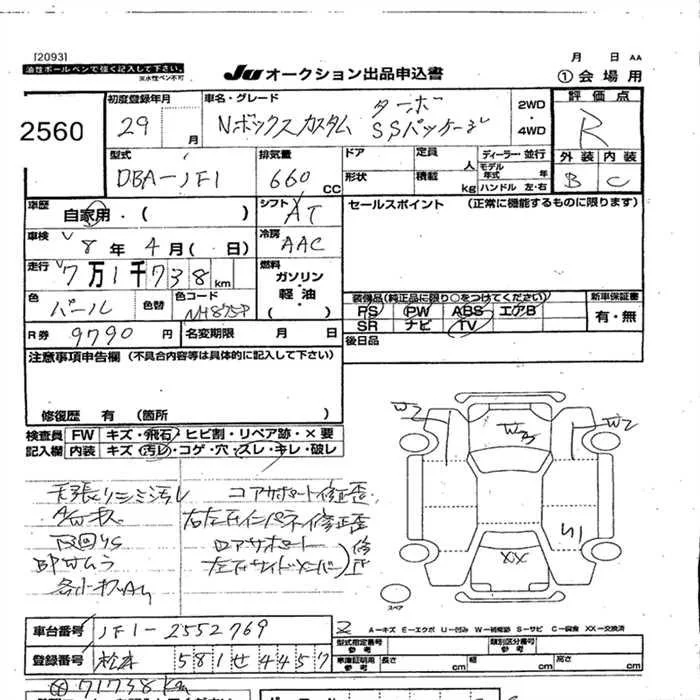 [2093]
油性ボールペンで強く記入して下さい。
※水性ペン不可
JU オークション出品申込書
月 日 AA
①会場用
2560
初度登録年月
29 月
車名・グレード
Nボックスカスタム ターボ SSパッケージ
2WD
・
4WD
評価点
R
外装 内装
B C
型式
DBA-JF1
排気量
660 CC
ドア
形状
定員 人
積載 kg
ディーラー・並行
モデル年式 年
ハンドル 左・右
車歴
自家用・( )
シフト
AT
セールスポイント (正常に機能するものに限ります)
車検
8年4月(日)
冷房
AAC
走行
7万1千738km
燃料
ガソリン
・
軽油
( )
色
パール
色替
色コード
NH875P
装備品(純正品に限り○をつけてください)
PS PW ABS エアB
SR ナビ TV
新車保証書
有・無
R券 9790 円
名変期限 月 日
後日品
注意事項申告欄 (不具合内容等は具体的に記入して下さい)
修復歴 有 (箇所 )
検査員 FW キズ・飛石・ヒビ割・リペア跡・×要
記入欄 内装 キズ・汚レ・コゲ・穴・ズレ・キレ・破レ
W2 W3 W2
コアサポート修正歪
右左Fインパネ修正歪
U1
XX
スペア
A=キズ E=エクボ U=凹み W=補修跡 S=サビ C=腐食 XX=交換済
車台番号 JF1-2552769
型式指定番号
参考
類別区分番号
参考
登録番号 松本 581 せ 4457
車庫証明用
参考
長さ cm 幅 cm 高さ cm
71738km